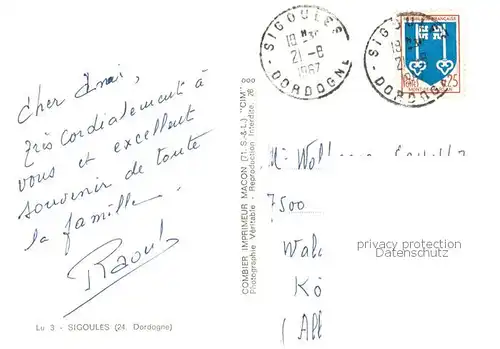 Cher Ami,
Très cordialement à
vous et excellent
souvenir de toute
la famille.
Raoul
Lu 3 - SIGOULES (24. Dordogne)
COMBIER IMPRIMEUR MACON (71. S.-&-L.) "CIM"
Photographie Véritable - Reproduction Interdite. 26
SIGOULES
18 H
21-8
1967
DORDOGNE
SIGOU
18
21 8
DORDOGNE
REPUBLIQUE FRANÇAISE
0,25
MONT-DE-MARSAN
7500
privacy protection
Datenschutz
Wal
Kö
(All